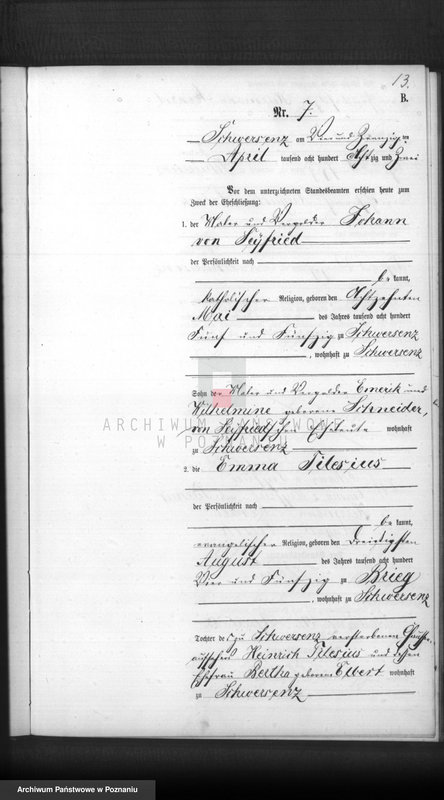 13.
B.
Nr. 7.
Schwersenz am Vier und Zwanzig ten
April tausend acht hundert Acht zig und Zwei
Vor dem unterzeichneten Standesbeamten erschien heute zum
Zweck der Eheschließung:
1. der Maler und Vergolder Johann
von Seyfried
der Persönlichkeit nach
be kannt,
katholischer Religion, geboren den Achtzehnten
Mai des Jahres tausend acht hundert
Fünf und Fünfzig zu Schwersenz
, wohnhaft zu Schwersenz
Sohn der Maler und Vergolder Emerik und
Wilhelmine geborene Schneider,
von Seyfried schen Eheleute wohnhaft
zu Schwersenz
ARCHIWUM PAŃSTWOWE
W POZNANIU
2. die Emma Tilesius
der Persönlichkeit nach
be kannt,
evangelischer Religion, geboren den Dreißigsten
August des Jahres tausend acht hundert
Vier und Fünfzig zu Brieg
, wohnhaft zu Schwersenz
Tochter des zu Schwersenz verstorbenen
Heinrich Tilesius und dessen
Ehefrau Bertha geborene Elbert wohnhaft
zu Schwersenz
Archiwum Państwowe w Poznaniu